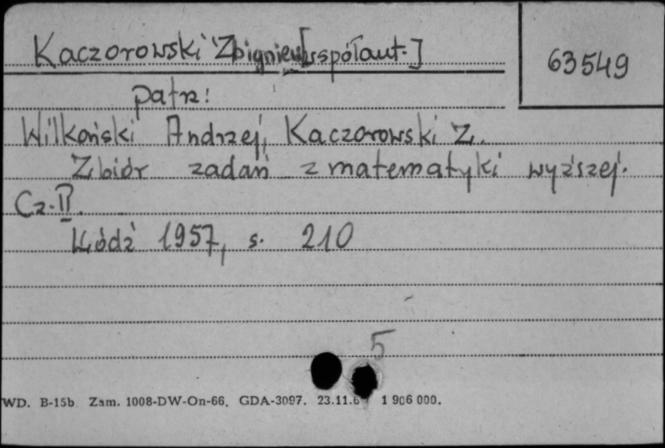 Kaczorowski Zbigniew [współaut.]
63549
patrz:
Wilkoński Andrzej, Kaczorowski Z.
Zbiór zadań z matematyki wyższej.
Cz. II.
Łódź 1957, s. 210
5
WD. B-15b Zam. 1008-DW-On-66. GDA-3097. 1 906 000.